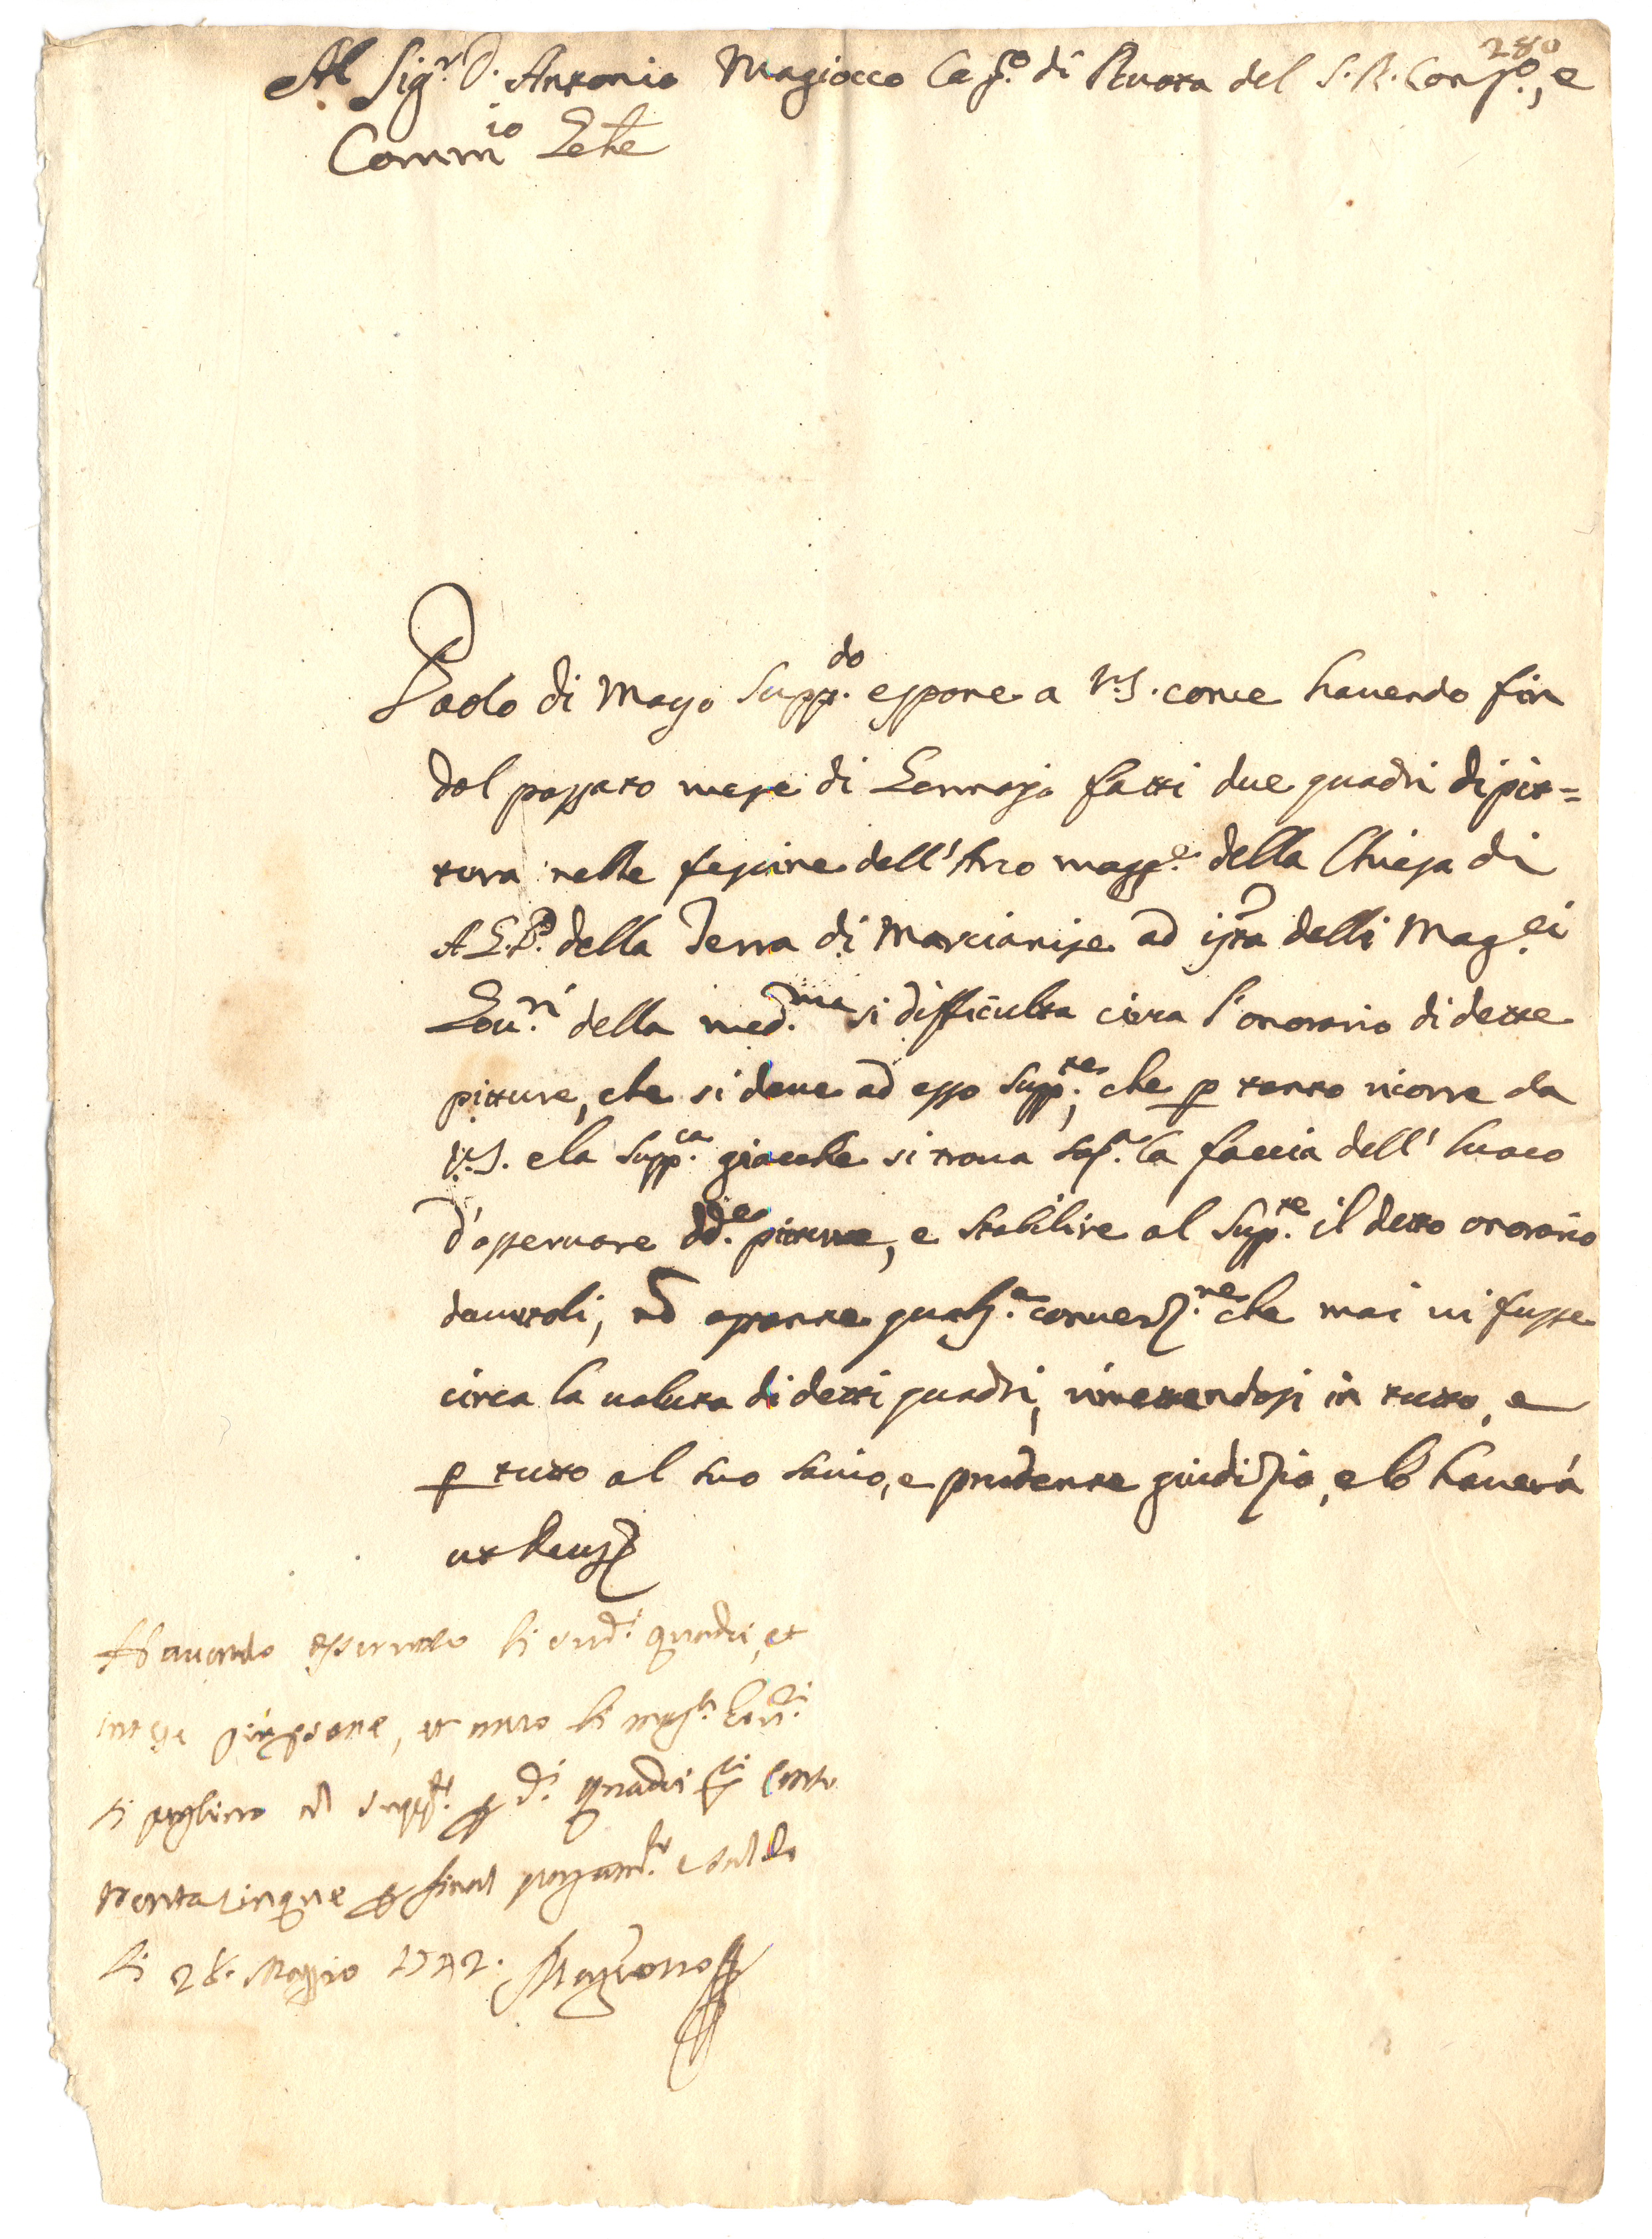 280
Al Sig.r D. Antonio Magiocco Cap.o di Ruota del S.R. Cons.o, e
Comm.io &
Paolo di Majo supp.do espone a V.S. come havendo fin
dal passato mese di Gennajo fatti due quadri di pit=
tura nelle fascine dell'Arco magg.e della Chiesa di
A.G.P. della Terra di Marcianise ad ista delli Mag.ei
Gov.ri della med.ma si difficulta circa l'onorario di dette
pitture, che si deve ad esso supp.te, che p tanto ricorre da
V.S. e la supp.ca giacche si trova sop.a la faccia dell' luoco
d'osservare dd.e pitture, e stabilire al sup.te il detto onorario
davutoli, non ostante quals.a convenz.ne che mai vi fusse
circa la valuta di detti quadri, rimettendosi in tutto, e
p tutto al suo savio, e prudente giudizio, e lo haverà
ut Deus
Havendo osservato li sud.i quadri, et
intese, et li mag.ci Gov.ri
si paghino al supp.te p d.i quadri d.ti cento
trentacinque p final pagam.to e saldo
li 28. Maggio